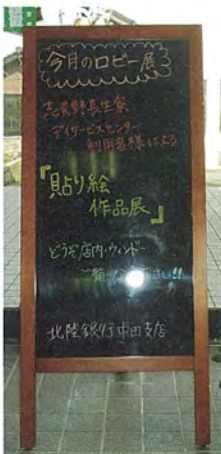 今月のロビー展
志貴野長生寮
デイサービスセンター
利用者様による
『貼り絵
作品展』
どうぞ店内・ウィンドー
ご覧ください!!
北陸銀行中田支店